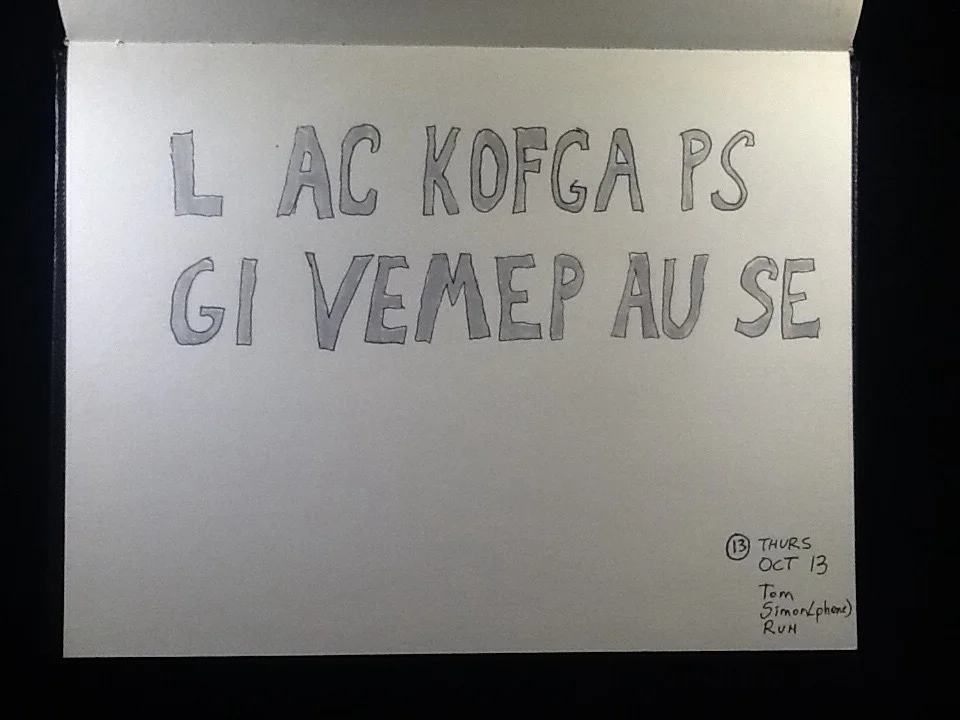 L AC KOFGA PS
GI VEMEP AU SE
13 THURS
OCT 13
Tom
Simon (phone)
RUN